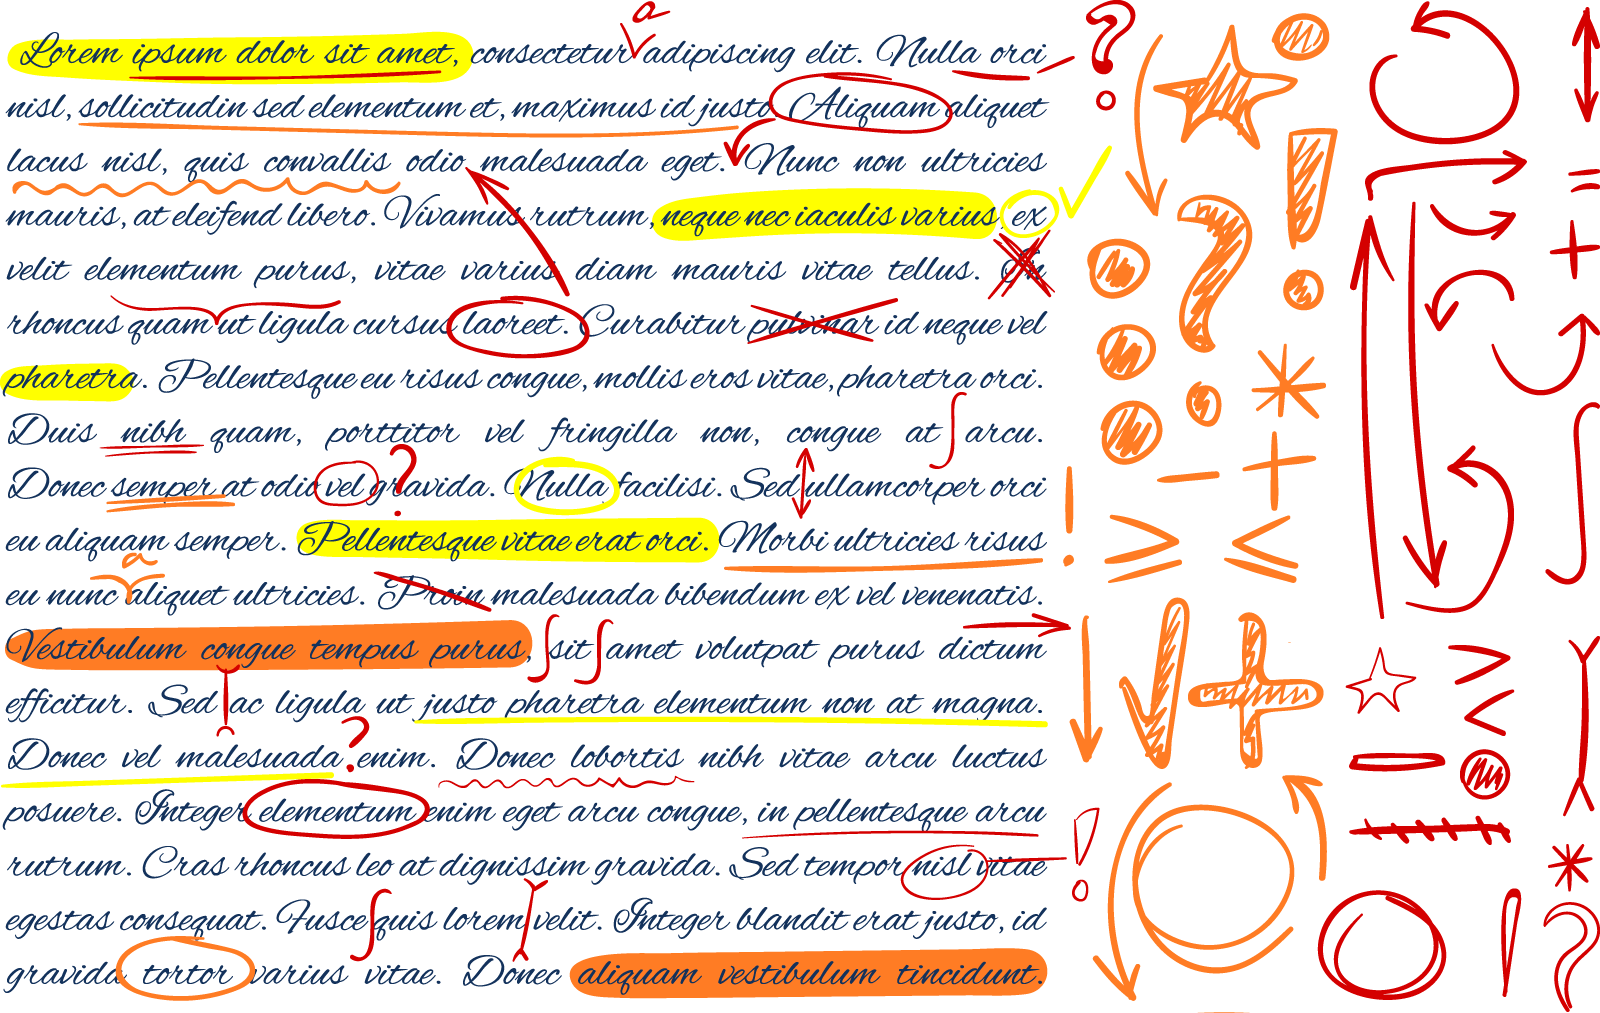 Lorem ipsum dolor sit amet, consectetur a adipiscing elit. Nulla orci
nisl, sollicitudin sed elementum et, maximus id justo. Aliquam aliquet
lacus nisl, quis convallis odio malesuada eget. Nunc non ultricies
mauris, at eleifend libero. Vivamus rutrum, neque nec iaculis varius ex
velit elementum purus, vitae varius diam mauris vitae tellus.
rhoncus quam ut ligula cursus laoreet. Curabitur pulvinar id neque vel
pharetra. Pellentesque eu risus congue, mollis eros vitae, pharetra orci.
Duis nibh quam, porttitor vel fringilla non, congue at arcu.
Donec semper at odio vel gravida. Nulla facilisi. Sed ullamcorper orci
eu aliquam semper. Pellentesque vitae erat orci. Morbi ultricies risus
eu nunc a aliquet ultricies. Proin malesuada bibendum ex vel venenatis.
Vestibulum congue tempus purus, sit amet volutpat purus dictum
efficitur. Sed ac ligula ut justo pharetra elementum non at magna.
Donec vel malesuada ? enim. Donec lobortis nibh vitae arcu luctus
posuere. Integer elementum enim eget arcu congue, in pellentesque arcu
rutrum. Cras rhoncus leo at dignissim gravida. Sed tempor nisl vitae
egestas consequat. Fusce quis lorem velit. Integer blandit erat justo, id
gravida tortor varius vitae. Donec aliquam vestibulum tincidunt.